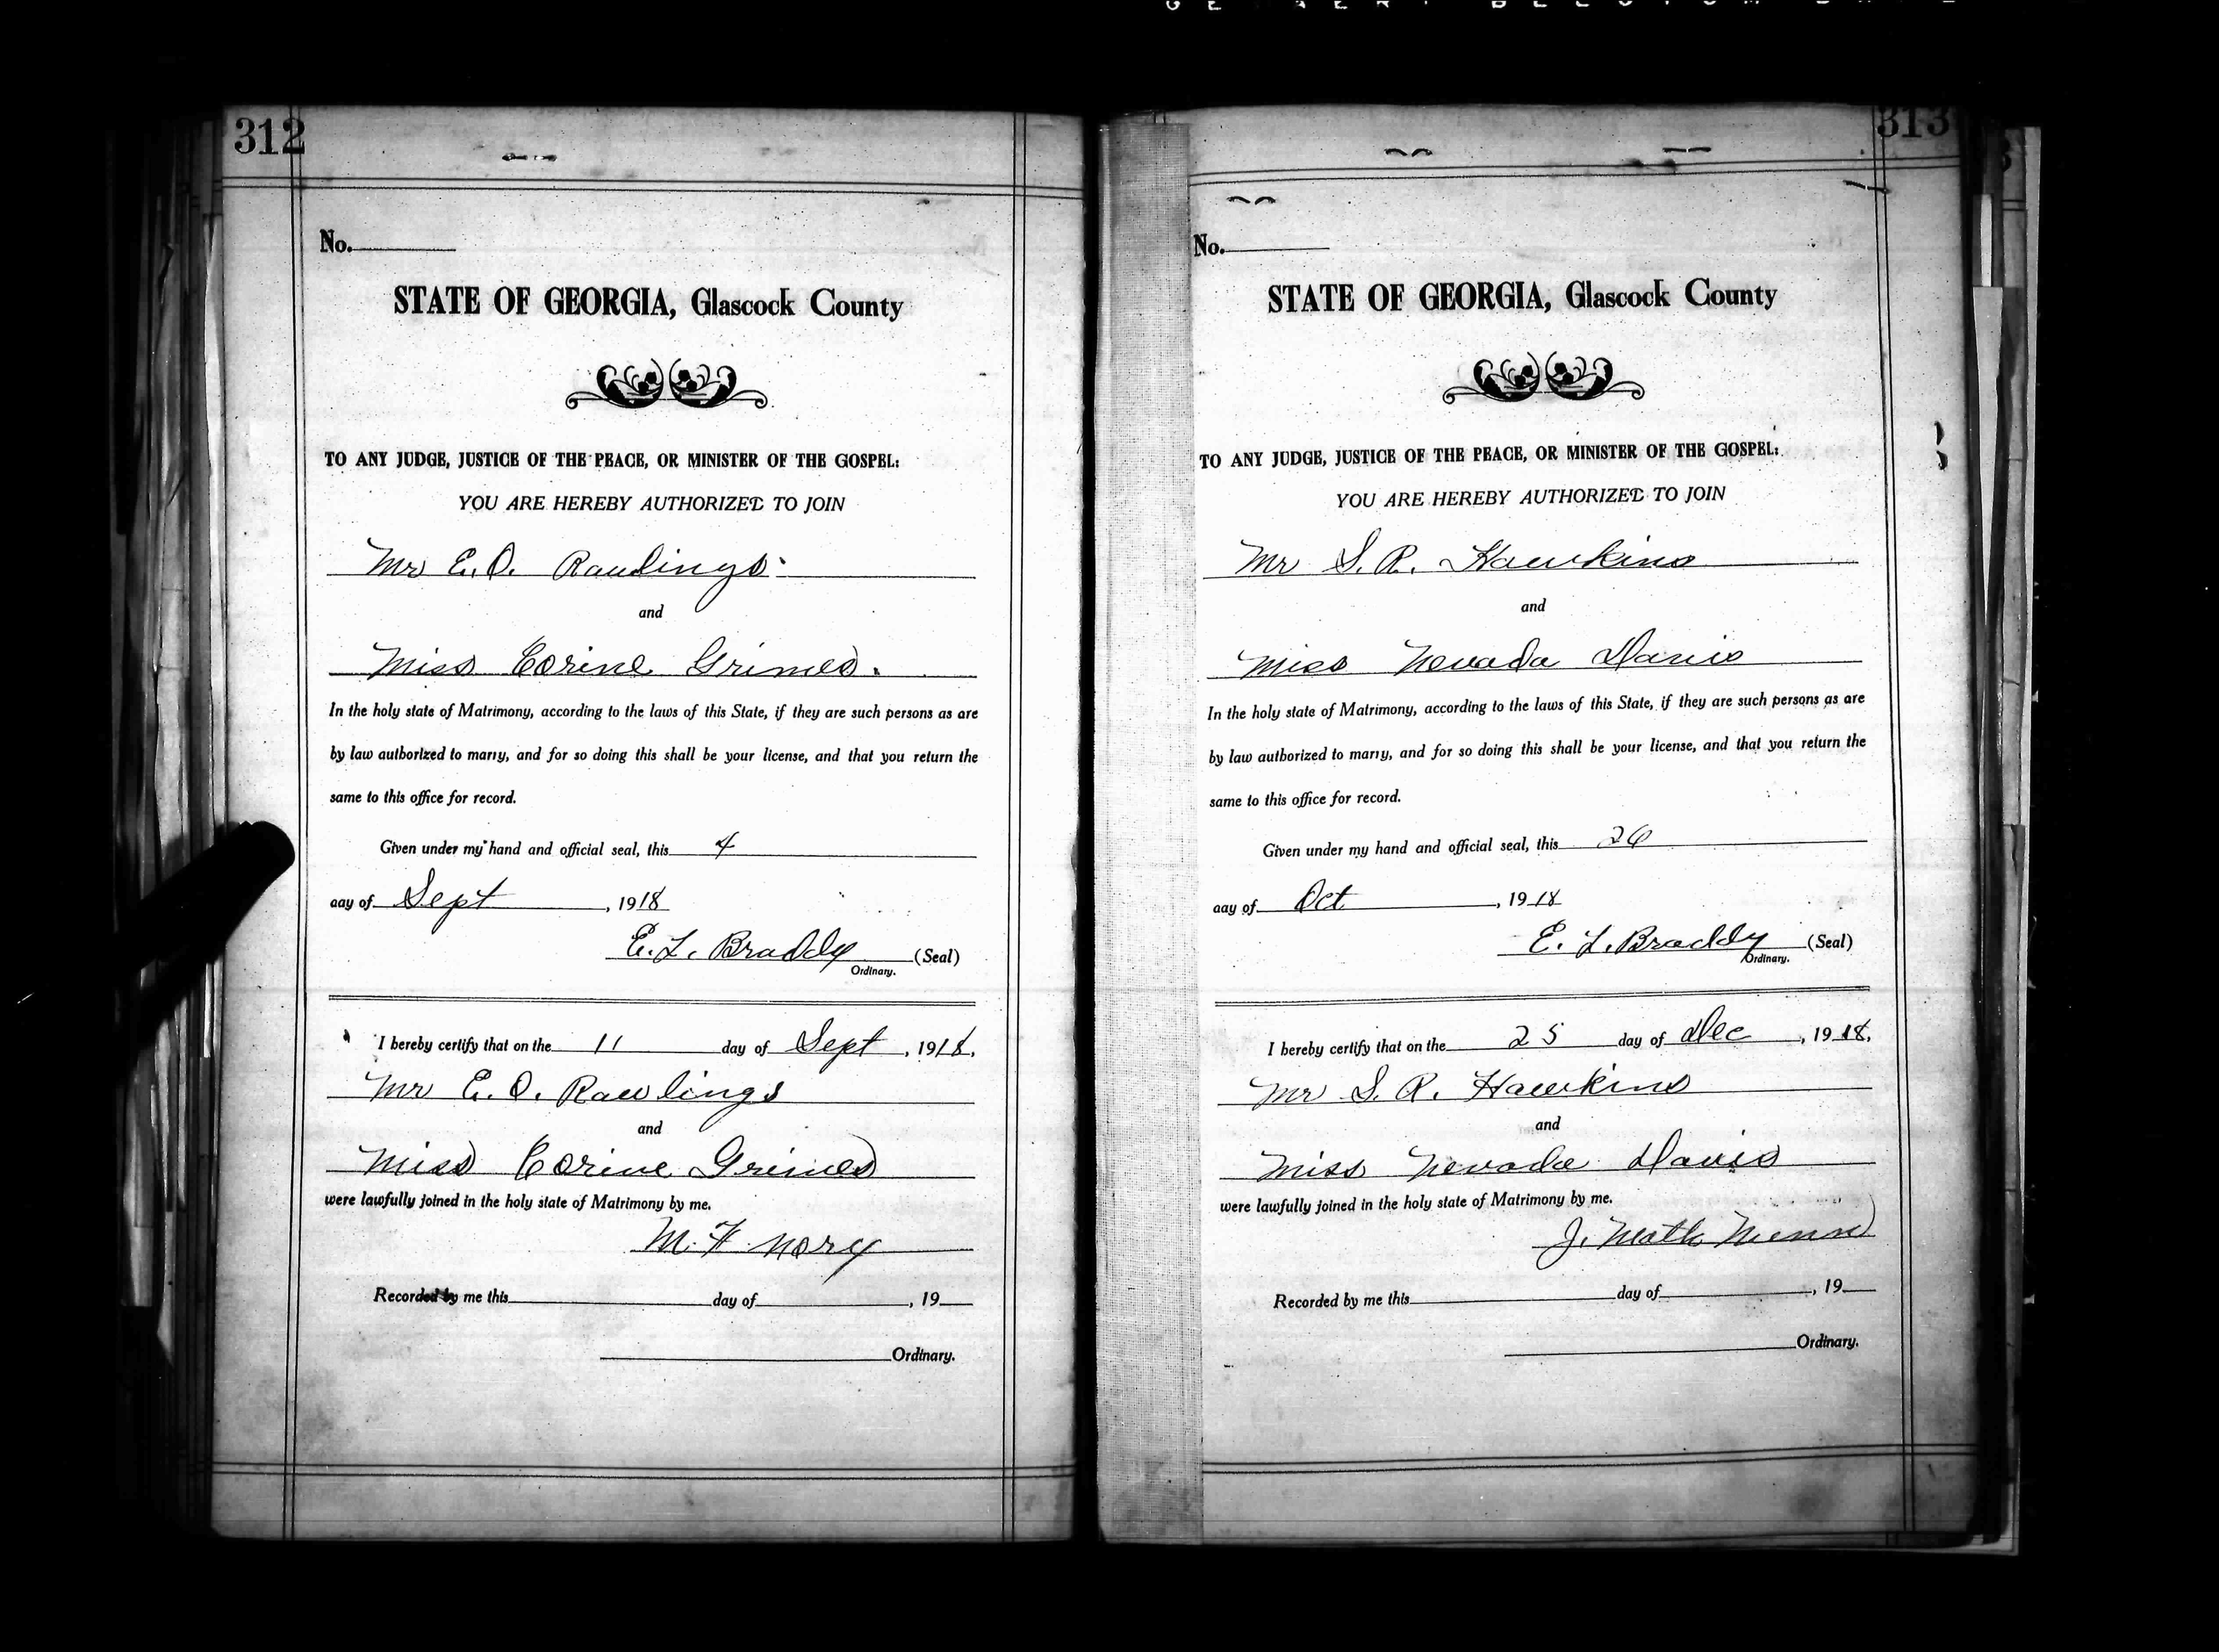 312
No.
STATE OF GEORGIA, Glascock County
TO ANY JUDGE, JUSTICE OF THE PEACE, OR MINISTER OF THE GOSPEL:
YOU ARE HEREBY AUTHORIZED TO JOIN
Mr E. O. Rawlings
and
Miss Corine Grimes.
In the holy state of Matrimony, according to the laws of this State, if they are such persons as are
by law authorized to marry, and for so doing this shall be your license, and that you return the
same to this office for record.
Given under my hand and official seal, this 4
day of Sept, 1918
E. L. Braddy (Seal)
Ordinary.
I hereby certify that on the 11 day of Sept, 1918.
Mr E. O. Rawlings
and
Miss Corine Grimes
were lawfully joined in the holy state of Matrimony by me.
M. F. Nory
Recorded by me this day of , 19
Ordinary.
313
No.
STATE OF GEORGIA, Glascock County
TO ANY JUDGE, JUSTICE OF THE PEACE, OR MINISTER OF THE GOSPEL:
YOU ARE HEREBY AUTHORIZED TO JOIN
Mr S. R. Hawkins
and
Miss Nevada Davis
In the holy state of Matrimony, according to the laws of this State, if they are such persons as are
by law authorized to marry, and for so doing this shall be your license, and that you return the
same to this office for record.
Given under my hand and official seal, this 26
day of Oct, 1918
E. L. Braddy (Seal)
Ordinary.
I hereby certify that on the 25 day of Dec, 1918.
Mr S. R. Hawkins
and
Miss Nevada Davis
were lawfully joined in the holy state of Matrimony by me.
J. Math Nunn
Recorded by me this day of , 19
Ordinary.